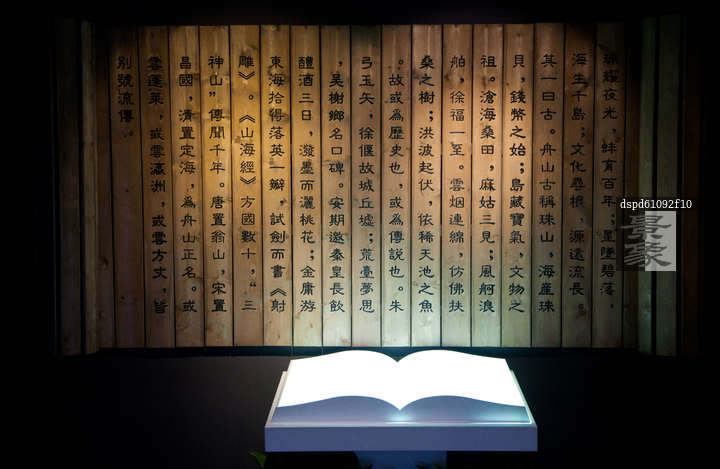 珠耀夜光，蚌育百年；星墜碧落，
海生千島；文化尋根，源遠流長。
其一曰古。舟山古稱珠山，海産珠
貝，錢幣之始；島藏寶氣，文物之
祖。滄海桑田，麻姑三見；風舸浪
舶，徐福一至。雲烟連綿，仿佛扶
桑之樹；洪波起伏，依稀天池之魚
。故或爲歷史也，或爲傳説也。朱
弓玉矢，徐偃故城丘墟；荒臺夢思
，吴榭鄉名口碑。安期邀秦皇長飲
醴酒三日，潑墨而灑桃花；金庸游
東海拾得落英一瓣，試劍而書《射
雕》。《山海經》方國數十，“三
神山”傳聞千年。唐置翁山，宋置
昌國，清置定海，爲舟山正名。或
雲蓬萊，或雲瀛洲，或雲方丈，皆
别號流傳。
dspd61092f10
景象